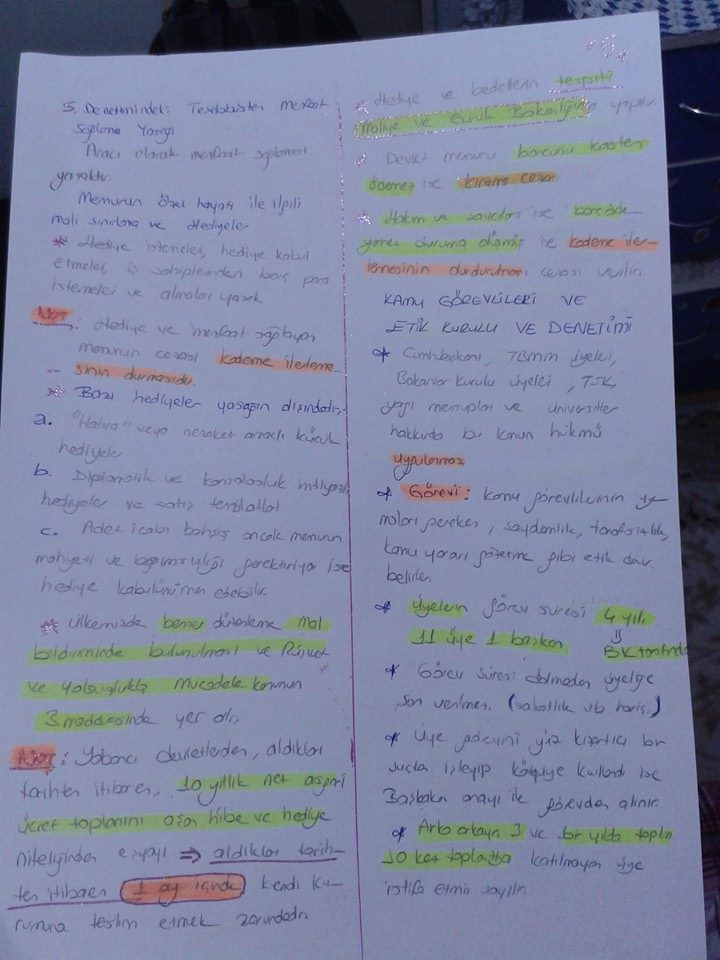 5. Denetimindeki Teşebbüsten Menfaat
Sağlama Yasağı
Aracı olarak menfaat sağlaması
yasaktır.
Memurun özel hayatı ile ilgili
mali sınırlama ve Hediyeler
* Hediye istemeleri, hediye kabul
etmeleri, iş sahiplerinden borç para
istemeleri ve almaları yasak.
NOT: Hediye ve menfaat sağlayan
memurun cezası kademe ilerleme
sinin durmasıdır.
* Bazı hediyeler yasağın dışındadır.
a. "Hatıra" veya nezaket amaçlı küçük
hediyeler
b. Diplomatik ve konsolosluk imtiyazlı
hediyeler ve satış
c. Adet icabı bahşiş ancak memurun
mahiyeti ve bağımsızlığı gerektiriyor ise
hediye kabulünü men edebilir.
* Ülkemizde benzer düzenleme mal
bildiriminde bulunulması ve Rüşvet
ve Yolsuzlukla Mücadele kanunun
3. maddesinde yer alır.
NOT: Yabancı devletlerden, aldıkları
tarihten itibaren, 10 yıllık net asgari
ücret toplamını aşan hibe ve hediye
niteliğinden eşyayı ⇒ aldıkları tarih-
ten itibaren 1 ay içinde kendi ku-
rumuna teslim etmek zorundadır.
5.
* Hediye ve bedellerin tespiti
Maliye ve Gümrük Bakanlığınca yapılır.
* Devlet memuru borcunu kasten
ödemez ise kınama cezası
* Hakim ve savcılar ise borç öde-
yemez duruma düşmüş ise kademe iler-
lemesinin durdurulması cezası verilir.
KAMU GÖREVLİLERİ VE
ETİK KURULU VE DENETİMİ
* Cumhurbaşkanı, TBMM üyeleri,
Bakanlar kurulu üyeleri, TSK,
yargı mensupları ve üniversiteler
hakkında bu kanun hükmü
uygulanmaz.
* Görevi: kamu görevlilerinin uy-
maları gereken, saydamlık, tarafsızlık,
kamu yararı gözetme gibi etik dav.
belirler.
* Üyelerin görev süresi 4 yılı
11 üye 1 başkan ⇓ BK tarafında
* Görev süresi dolmadan üyeliğe
son verilmez. (sakatlık vb hariç.)
* Üye görevini yüz kızartıcı bir
suçla işleyip kötüye kullandı ise
Başbakan onayı ile görevden alınır.
* Arka arkaya 3 ve bir yılda toplam
10 kez toplantıya katılmayan üye
istifa etmiş sayılır.